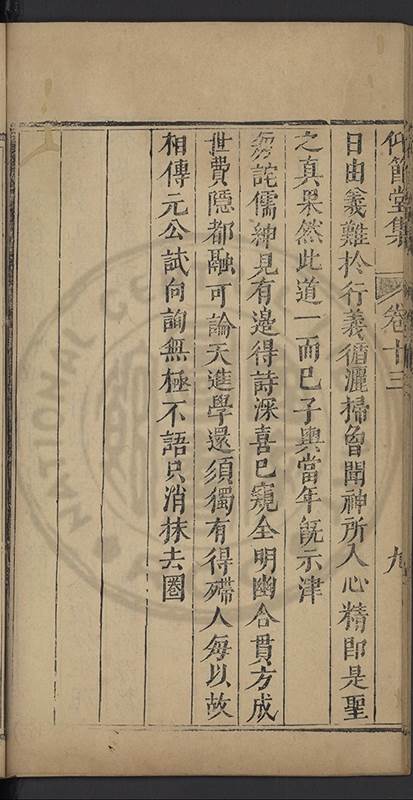 仰節堂集 卷十三 九
日由義難於行義循灑掃曾聞神所入心精即是聖
之真果然此道一而已子輿當年旣示津
詫儒紳見有邊得詩深喜已窺全明幽合貫方成
世費隱都融可論天進學還須獨有得殢人每以故
相傳元公試向詢無極不語只消抹去圏